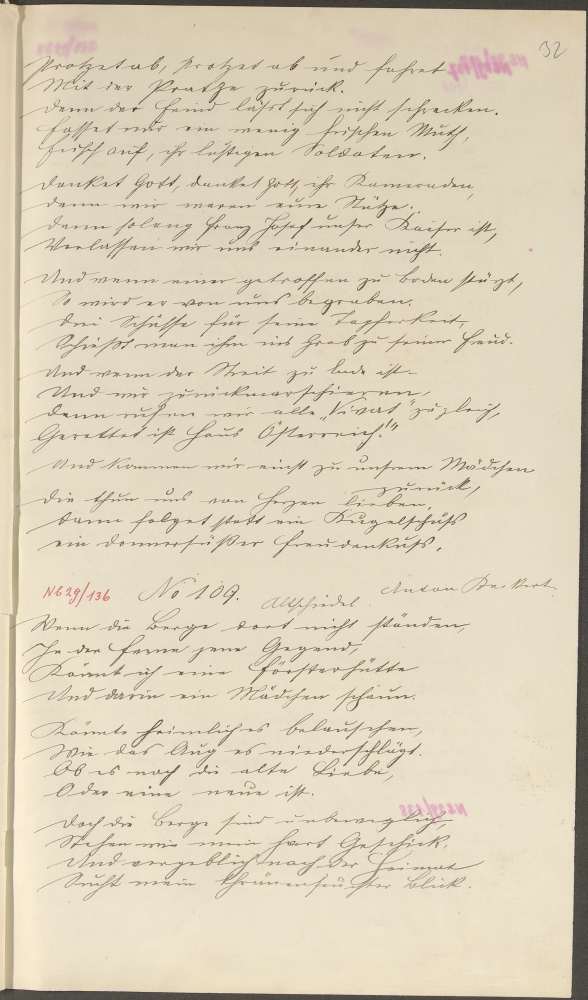 32
Protzet ab, protzet ab und fahret
Mit der Protze zurück.
Denn der Feind läßt sich nicht schrecken.
Fasset nur ein wenig frischen Muth,
Frisch auf, ihr lustigen Soldaten.
Danket Gott, danket Gott, ihr Kameraden,
Denn wir waren eure Stütze.
Denn solang Franz Josef unser Kaiser ist,
Verlassen wir uns einander nicht.
Und wenn einer getroffen zu Boden stürzt,
So wird er von uns begraben.
Drei Schüsse für seine Tapferkeit,
Schießt man ihm ins Grab zu seiner Freud.
Und wenn der Streit zu Ende ist
Und wir zurückmarschieren,
Dann rufen wir alle „Vivat" zugleich,
Gerettet ist Haus Österreich!"
Und kommen wir einst zu unsrem Mädchen
zurück,
Die thun uns von Herzen lieben,
Dann folget statt ein Kugelschuß
ein donnersüßer Freudenkuß.
NB 29/136 No 109. Altschiedel. Anton
Wenn die Berge dort nicht ständen,
In der Ferne jene Gegend,
Könnt ich eine Försterhütte
Und darin ein Mädchen schaun.
Könnte heimlich es belauschen,
Wie das Aug es niederschlägt.
Ob es noch die alte Liebe,
Oder eine neue ist.
Doch die Berge sind unbeweglich,
Stehen wie mein hart Geschick.
Und vergeblich nach der Heimat
Sucht mein thränenfeuchter Blick.